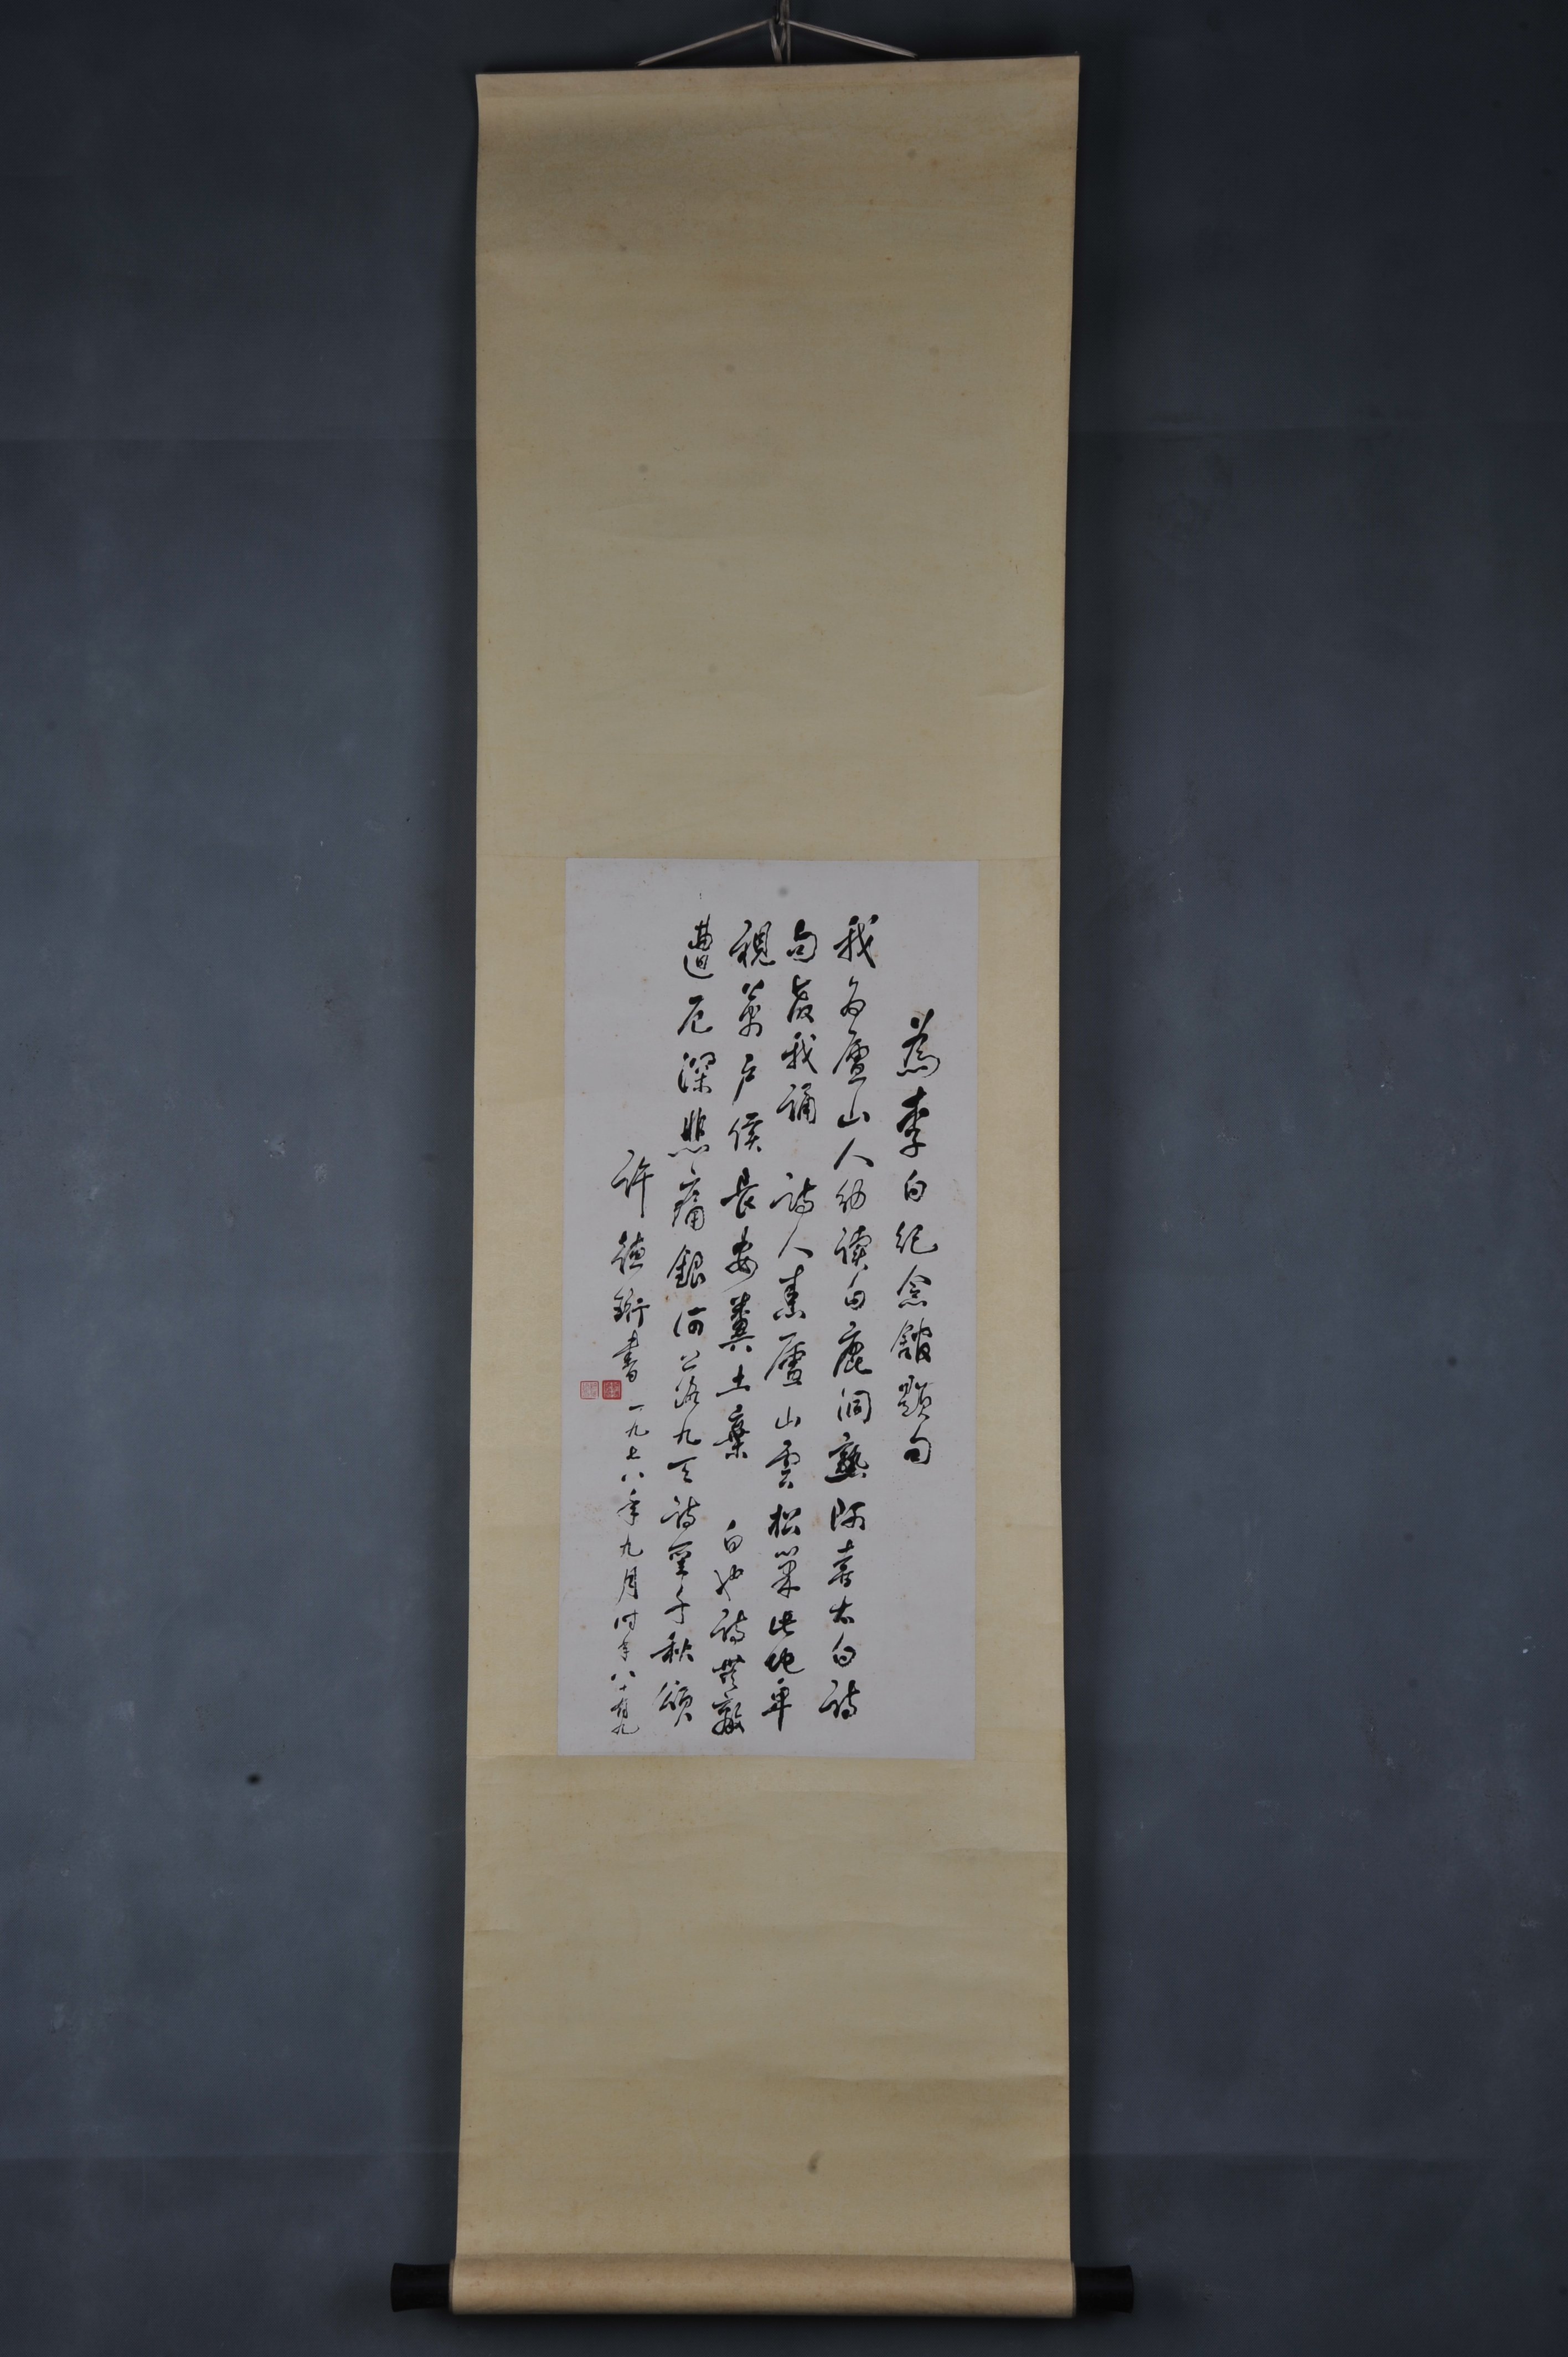 為李白纪念舘题句
我为廬山人幼读白鹿洞熟聞喜太白詩
句教我誦 詩人素廬山雲松巢此地卑
視萬户侯長安糞土棄 白也詩無敵
遭厄深悲痛銀河落九天詩聖千秋頌
許德珩書一九七八年九月时年八十有九